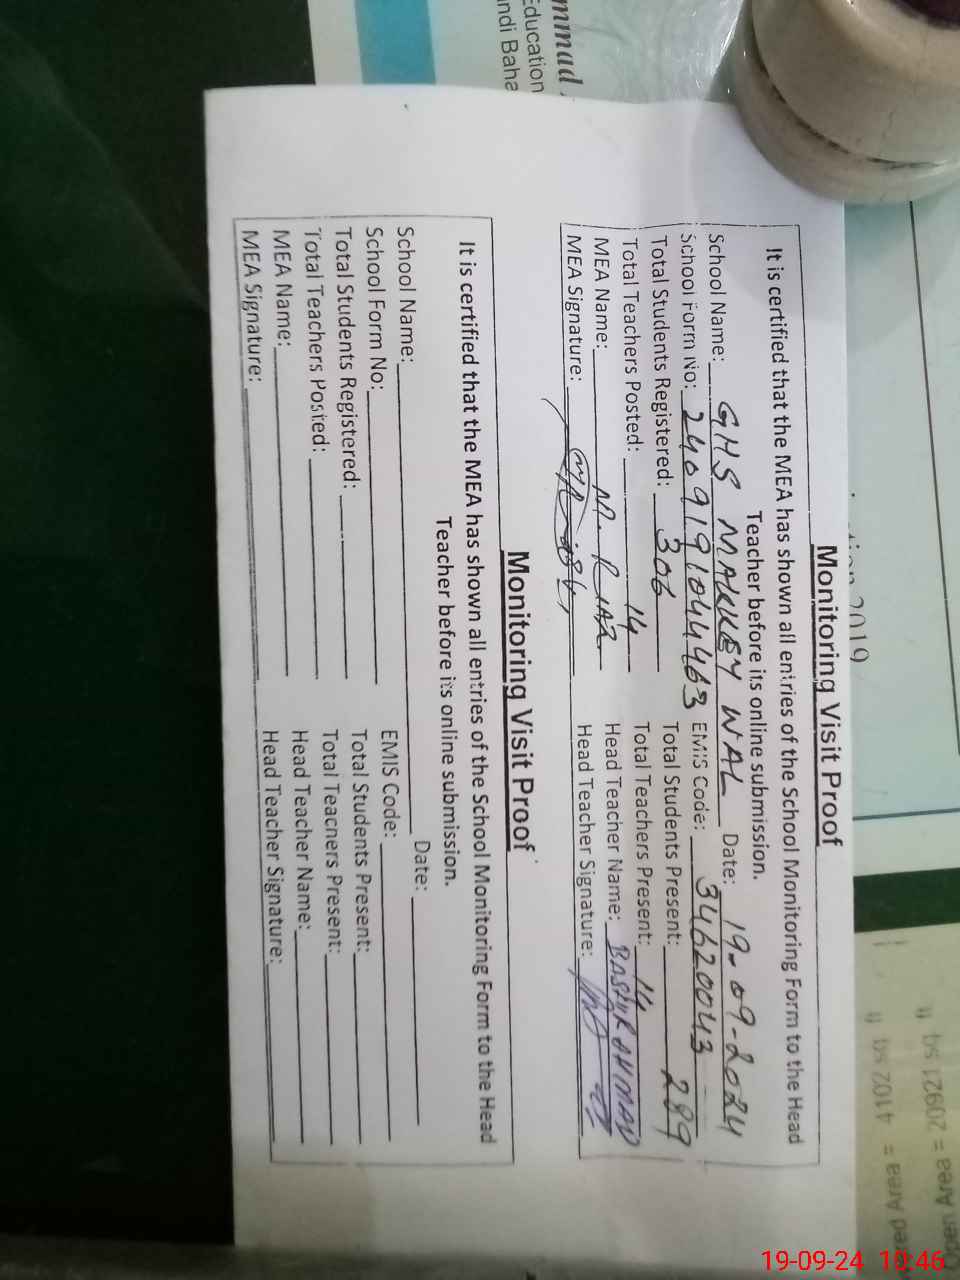 mmad
Education
ndi Baha
2019
Monitoring Visit Proof
It is certified that the MEA has shown all entries of the School Monitoring Form to the Head
Teacher before its online submission.
School Name: GHS MAKKEY WAL Date: 19-09-2024
School Form No: 2409191044463 EMIS Code: 34620043
Total Students Registered: 306 Total Students Present: 289
Total Teachers Posted: 14 Total Teachers Present: 14
MEA Name: M. RIAZ Head Teacher Name: BASHIR AHMAD
MEA Signature: Head Teacher Signature:
Monitoring Visit Proof
It is certified that the MEA has shown all entries of the School Monitoring Form to the Head
Teacher before its online submission.
School Name: Date:
School Form No: EMIS Code:
Total Students Registered: Total Students Present:
Total Teachers Posted: Total Teachers Present:
MEA Name: Head Teacher Name:
MEA Signature: Head Teacher Signature:
Area = 20921 sq
Area = 4102 sq
19-09-24 10:46